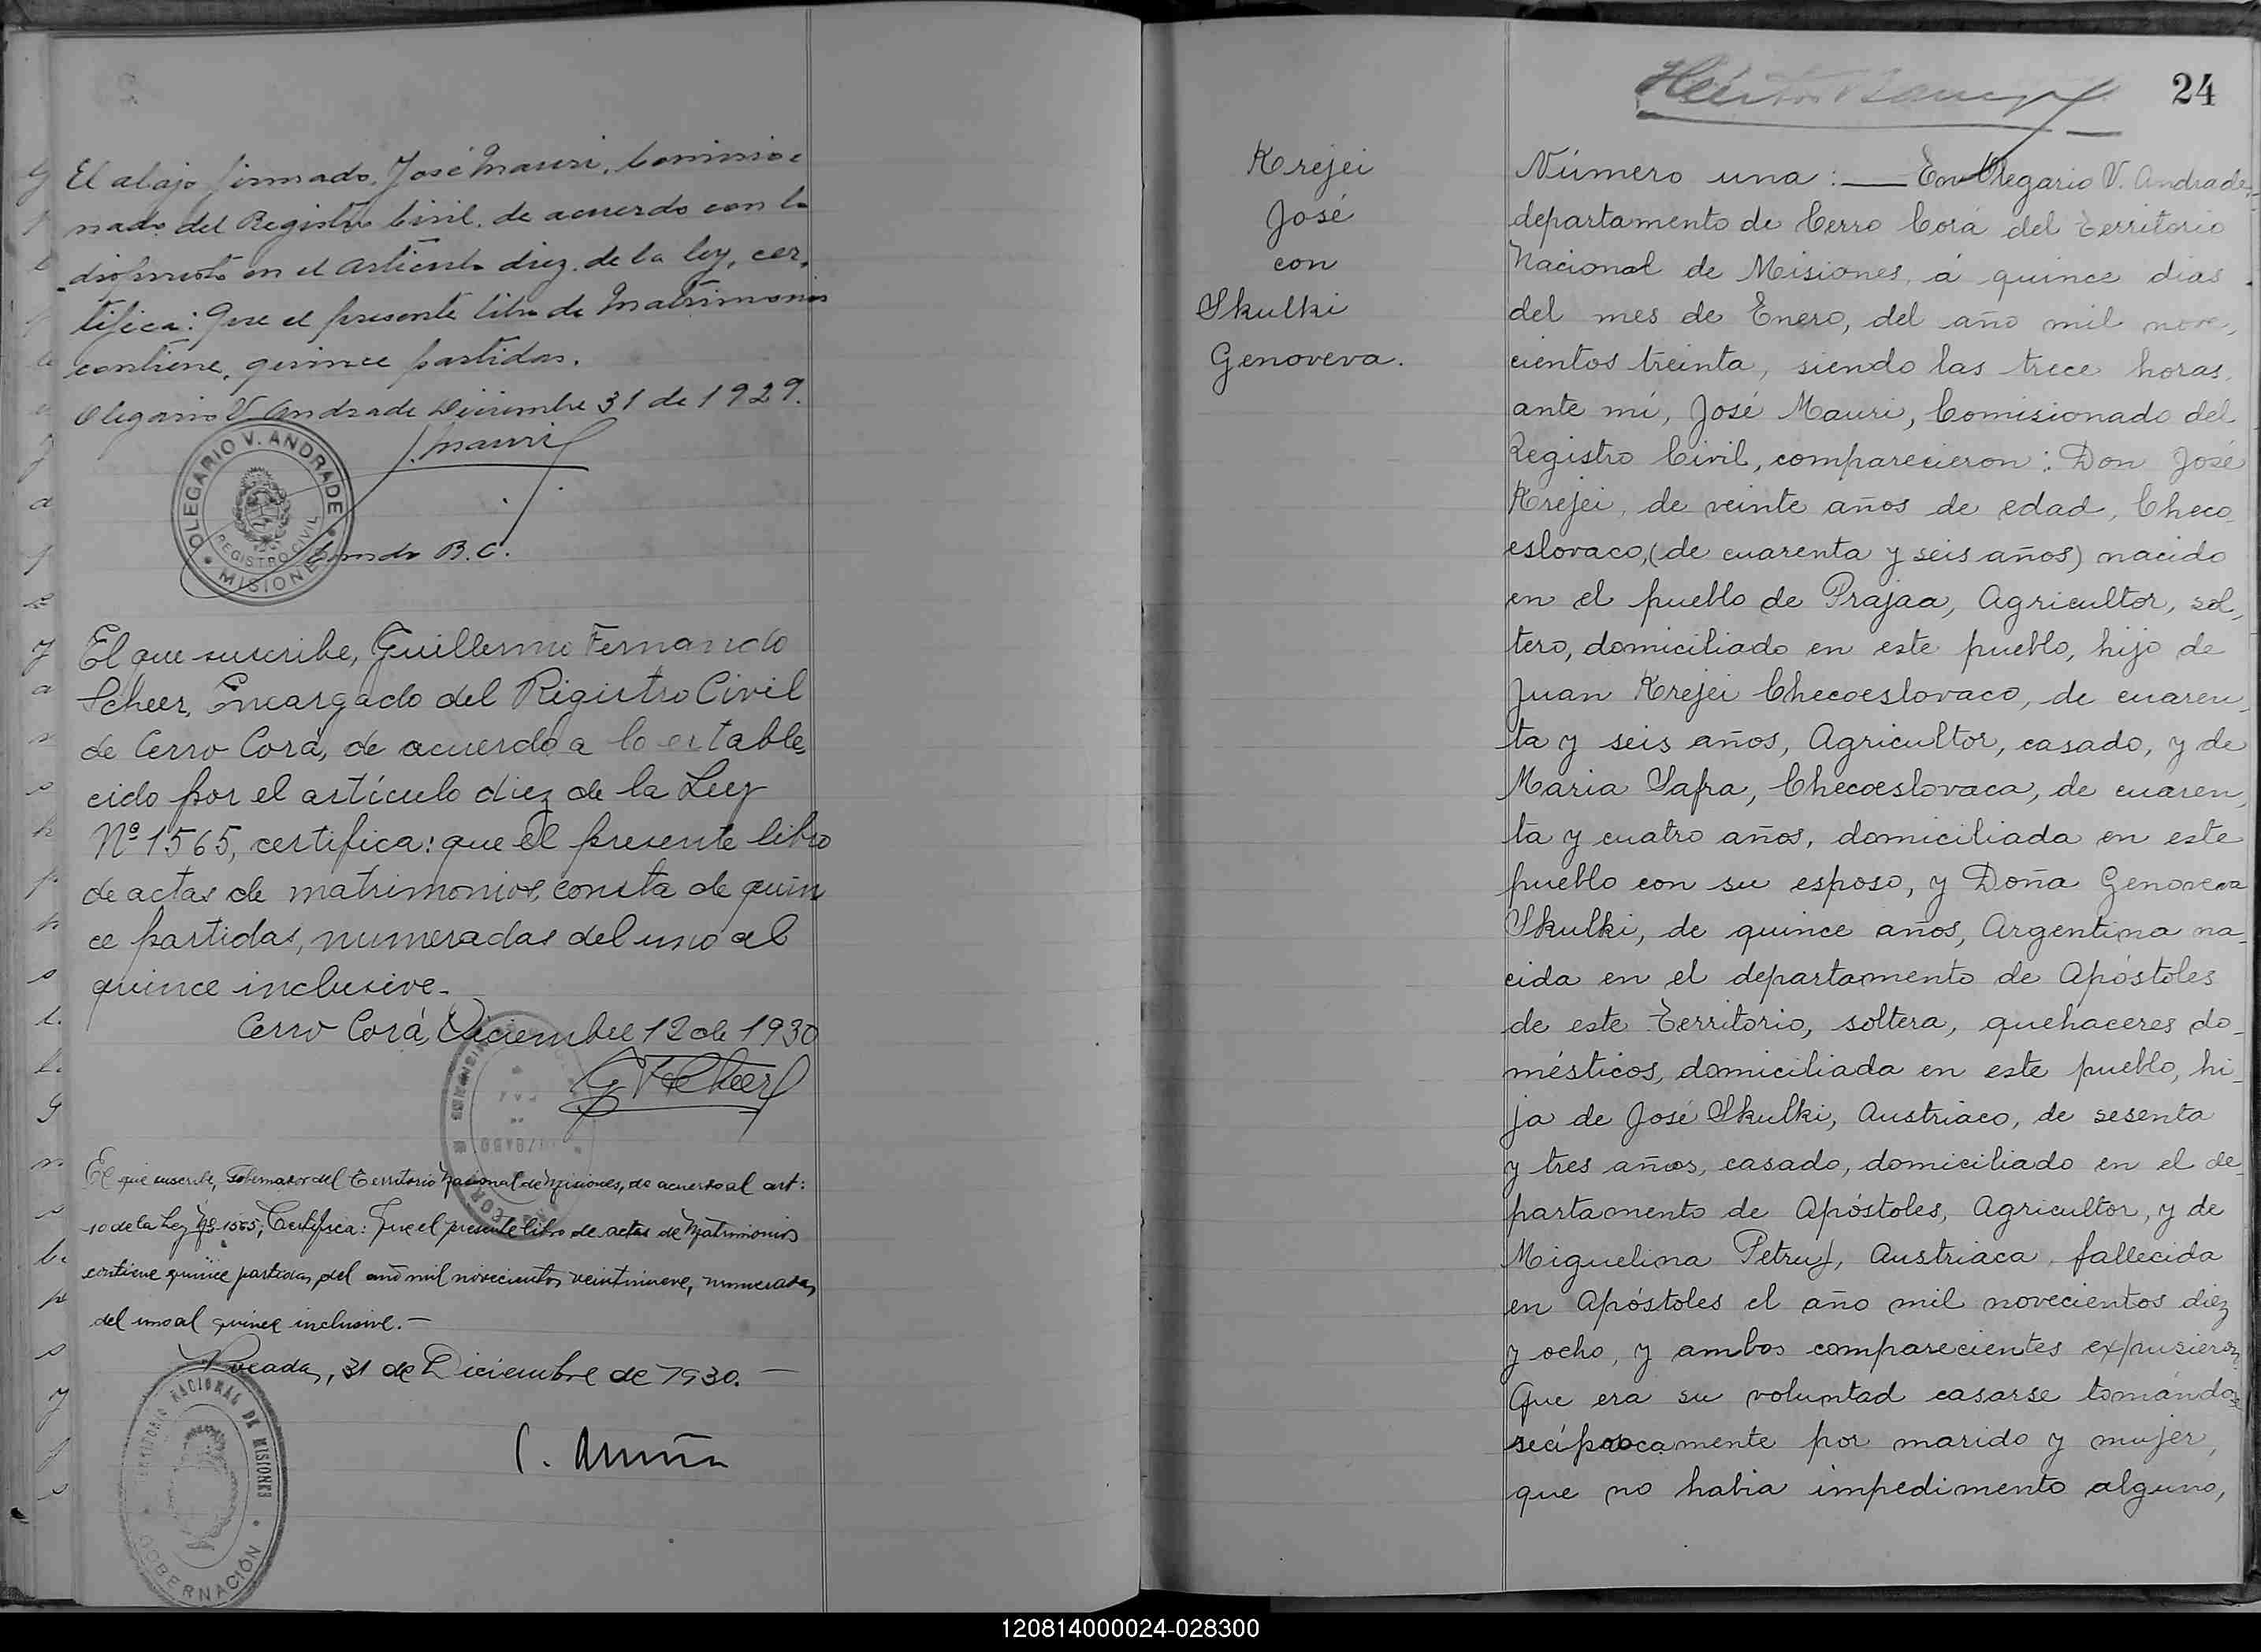 El abajo firmado, José Mauri, Comisio-
nado del Registro Civil, de acuerdo con lo
dispuesto en el artículo diez de la ley, cer-
tifica: Que el presente libro de Matrimonios
contiene, quince partidas.
Olegario V. Andrade Diciembre 31 de 1929.
J. Mauri
OLEGARIO V. ANDRADE
REGISTRO CIVIL
MISIONES
Comdo R.C.
El que suscribe, Guillermo Fernando
Scheer, Encargado del Registro Civil
de Cerro Corá, de acuerdo a lo estable-
cido por el artículo diez de la Ley
Nº 1565, certifica: que el presente libro
de actas de matrimonios, consta de quin
ce partidas, numeradas del uno al
quince inclusive.-
Cerro Corá, Diciembre 12 de 1930
G F Scheer
El que suscribe, Gobernador del Territorio Nacional de Misiones, de acuerdo al art:
10 de la Ley Nº 1565; Certifica: Que el presente libro de actas de Matrimonios
contiene quince partidas del año mil novecientos veintinueve, numeradas
del uno al quince inclusive.-
Posadas, 31 de Diciembre de 1930.-
TERRITORIO NACIONAL DE MISIONES
GOBERNACIÓN
24
Krejei
José
con
Skulki
Genoveva.
Número una: — En Olegario V. Andrade,
departamento de Cerro Corá del Territorio
Nacional de Misiones, á quince dias
del mes de Enero, del año mil nove,
cientos treinta, siendo las trece horas,
ante mí, José Mauri, Comisionado del
Registro Civil, comparecieron: Don José
Krejei, de veinte años de edad, Checo-
eslovaco, (de cuarenta y seis años) nacido
en el pueblo de Prajaa, Agricultor, sol,
tero, domiciliado en este pueblo, hijo de
Juan Krejei Checoeslovaco, de cuaren,
ta y seis años, Agricultor, casado, y de
Maria Safra, Checoeslovaca, de cuaren,
ta y cuatro años, domiciliada en este
pueblo con su esposo, y Doña Genoveva
Skulki, de quince años, Argentina na-
cida en el departamento de Apóstoles
de este Territorio, soltera, quehaceres do-
mésticos, domiciliada en este pueblo, hi-
ja de José Skulki, Austriaco, de sesenta
y tres años, casado, domiciliado en el de-
partamento de Apóstoles, Agricultor, y de
Miguelina Petruf, Austriaca, fallecida
en Apóstoles el año mil novecientos diez
y ocho, y ambos comparecientes expusieron,
Que era su voluntad casarse tomándose
recíprocamente por marido y mujer,
que no habia impedimento alguno,
120814000024-028300